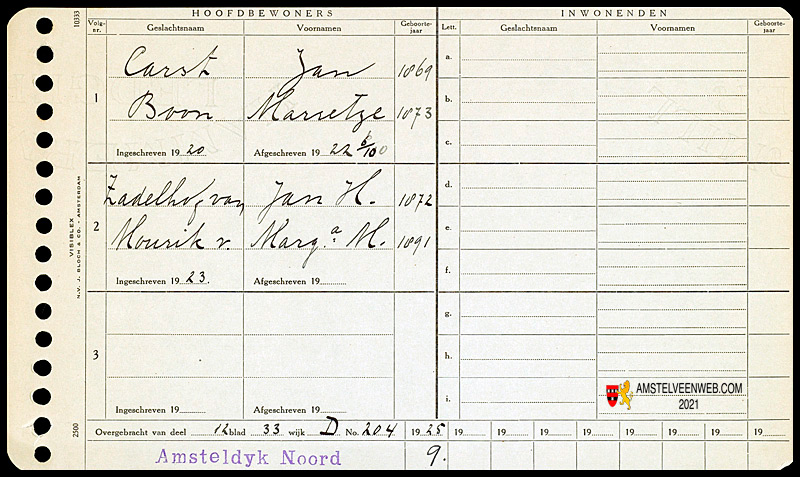 HOOFDBEWONERS INWONENDEN
Volg-nr. Geslachtsnaam Voornamen Geboorte-jaar Lett. Geslachtsnaam Voornamen Geboorte-jaar
1
Carst Jan 1869
Boon Marretje 1873
Ingeschreven 1920 Afgeschreven 1922 6/100
2
Zadelhof, van Jan H. 1872
Mourik v. Marg.a M. 1891
Ingeschreven 1923. Afgeschreven 19
3
Ingeschreven 19 Afgeschreven 19
a.
b.
c.
d.
e.
f.
g.
h.
i.
Overgebracht van deel 12 blad 33 wijk D No. 204 1925 19 19 19 19 19 19 19 19
Amsteldyk Noord 9.
10333
VISIBLEX
N.V. J. BLOCH & CO. - AMSTERDAM
2500
AMSTELVEENWEB.COM
2021